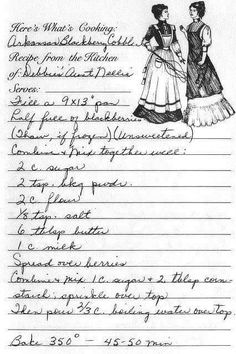 Here's What's Cooking:
Arkansas Blackberry Cobbler
Recipe from the Kitchen
of Debbie's Aunt Nellie
Serves:
Fill a 9X13" pan
Half full of blackberries
(Thaw, if frozen) (Unsweetened)
Combine & Mix together well:
2 c. sugar
2 tsp. bkg pwdr.
2 c flour
1/8 tsp. salt
6 tblsp butter
1 c. milk
Spread over berries
Combine & mix 1 c. sugar & 2 tblsp corn-
starch; sprinkle over top
Then pour 2/3 c. boiling water over top.
Bake 350° - 45-50 min